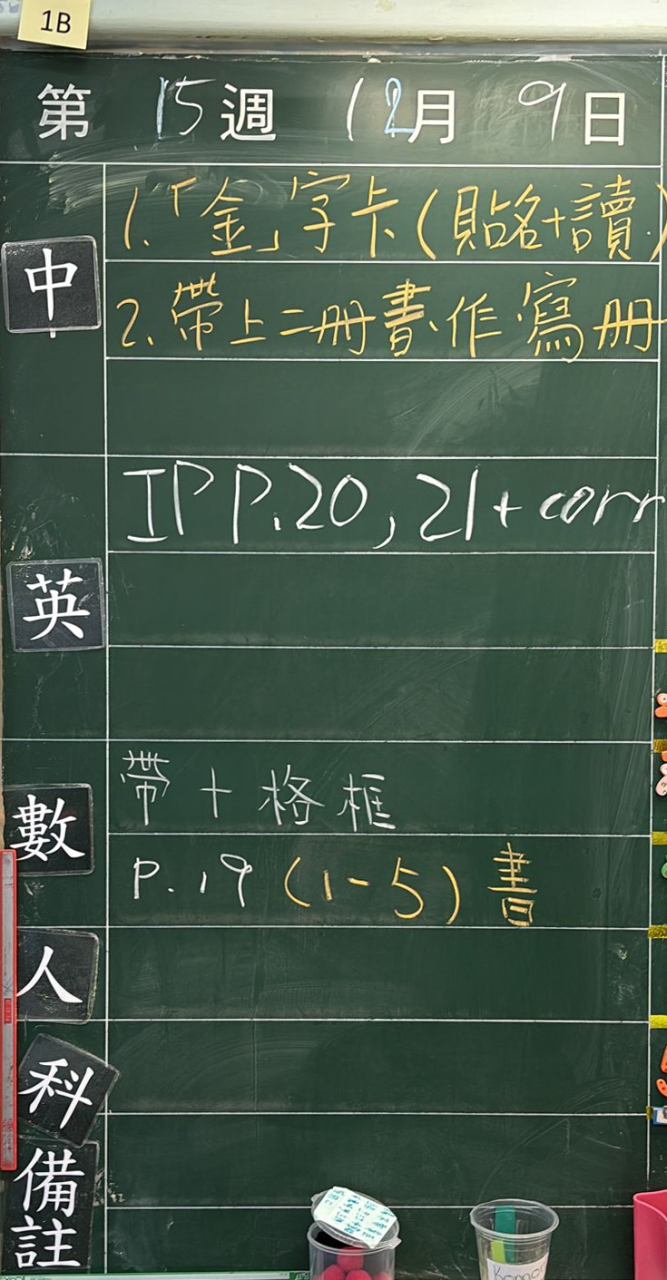 1B
第 15 週 12 月 9 日
中
1.「金」字卡(貼名+讀)
2. 帶上二冊書、作、寫冊
英
IP P.20, 21 + corr
數
帶十格框
P.19 (1-5) 書
人
科
備註